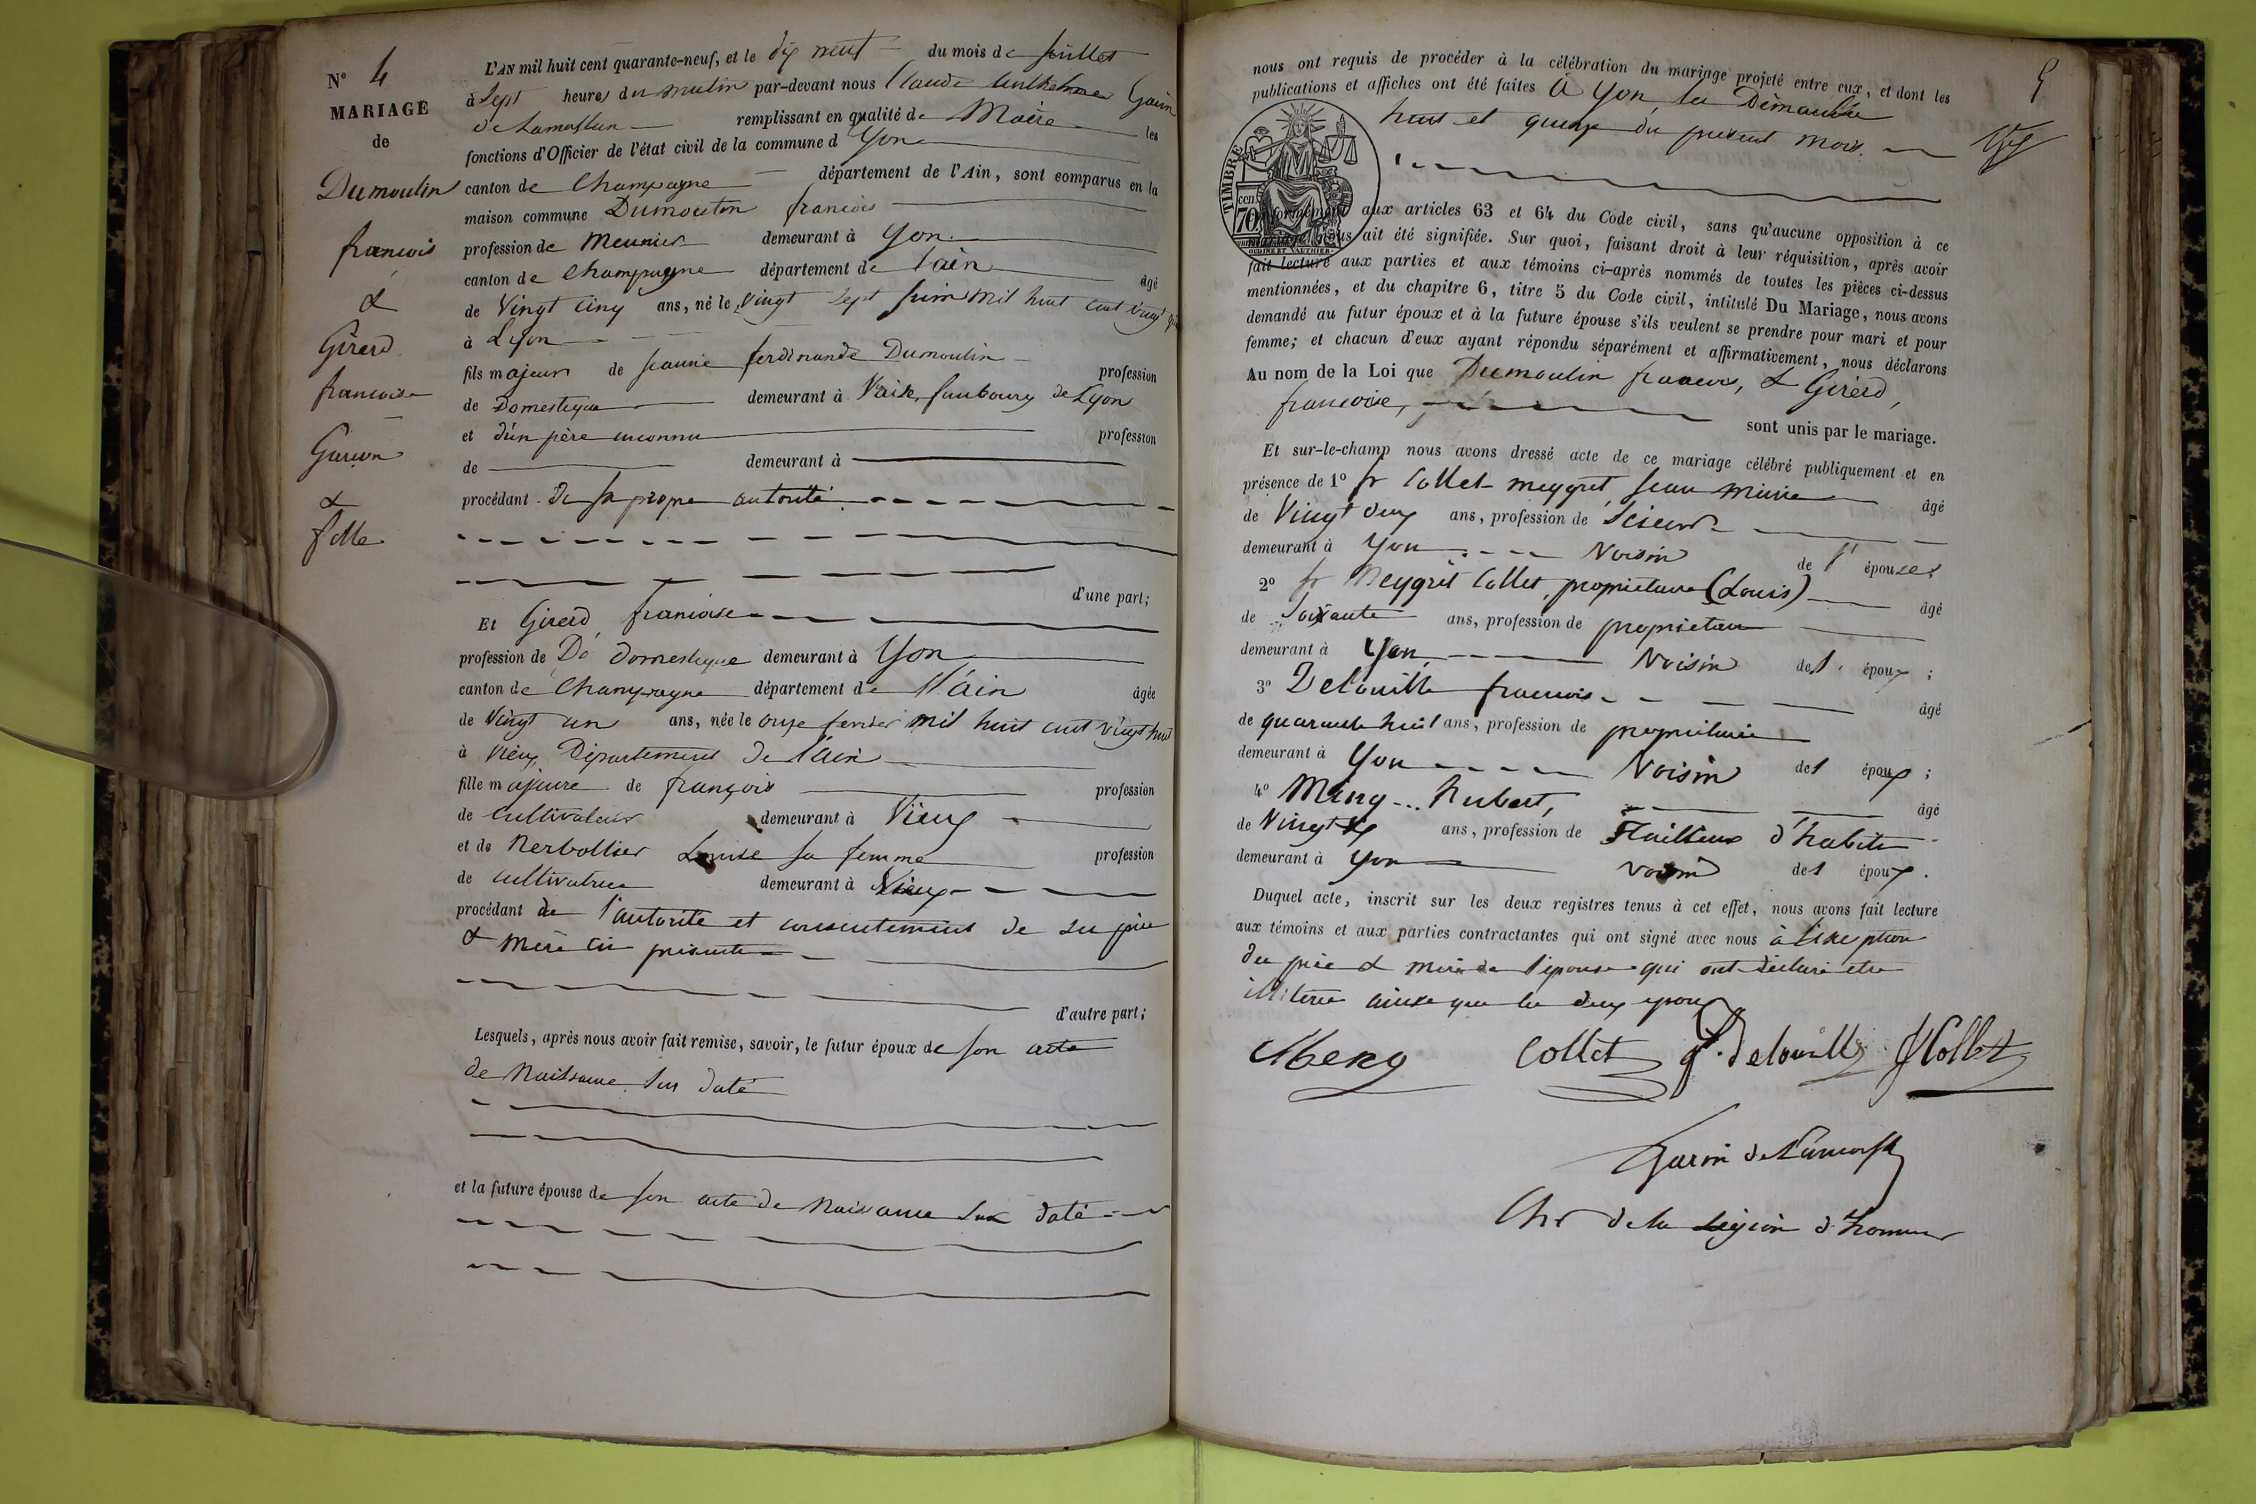 N° 4
MARIAGE
de
Dumoulin
francois
&
Girerd
francoise
Garçon
&
fille
L'AN mil huit cent quarante-neuf, et le dix neuf du mois de juillet
à Sept heures du matin par-devant nous Claude Anthelme Garin
de Lamorflan remplissant en qualité de Maire les
fonctions d'Officier de l'état civil de la commune d Yon
canton de Champagne département de l'Ain, sont comparus en la
maison commune Dumoulin francois
profession de Meunier demeurant à Yon
canton de Champagne département de l'ain âgé
de Vingt cinq ans, né le Vingt sept juin mil huit cent vingt
à Lyon
fils majeur de jeanne ferdinande Dumoulin profession
de Domestique demeurant à Vaise, faubourg de Lyon
et d'un père inconnu profession
de demeurant à
procédant de sa propre autorité
d'une part;
Et Girerd francoise
profession de De domestique demeurant à Yon
canton de Champagne département de l'ain âgée
de Vingt un ans, née le onze fevrier mil huit cent vingt huit
à Vieu Département de l'ain
fille majeure de françois profession
de cultivateur demeurant à Vieu
et de Nerbollier Louise sa femme profession
de cultivatrice demeurant à Vieu
procédant de l'autorité et consentement de ses père
& mère ici présents
d'autre part;
Lesquels, après nous avoir fait remise, savoir, le futur époux de son acte
de Naissance sus daté
et la future épouse de son acte de Naissance sus daté
5
nous ont requis de procéder à la célébration du mariage projeté entre eux, et dont les
publications et affiches ont été faites à Yon, les Dimanches
huit et quinze du présent mois.
TIMBRE
cen. 70
conformément aux articles 63 et 64 du Code civil, sans qu'aucune opposition à ce
mariage nous ait été signifiée. Sur quoi, faisant droit à leur réquisition, après avoir
fait lecture aux parties et aux témoins ci-après nommés de toutes les pièces ci-dessus
mentionnées, et du chapitre 6, titre 5 du Code civil, intitulé Du Mariage, nous avons
demandé au futur époux et à la future épouse s'ils veulent se prendre pour mari et pour
femme; et chacun d'eux ayant répondu séparément et affirmativement, nous déclarons
Au nom de la Loi que Dumoulin francois, & Girerd,
francoise, sont unis par le mariage.
Et sur-le-champ nous avons dressé acte de ce mariage célébré publiquement et en
présence de 1° fr Collet meygret, jean marie âgé
de Vingt deux ans, profession de Scieur
demeurant à Yon Voisin de l' épouse;
2° fr Meygret Collet, propriétaire (Louis) âgé
de Soixante ans, profession de propriétaire
demeurant à Yon, Voisin de l' époux;
3° Delouille francois âgé
de quarante huit ans, profession de propriétaire
demeurant à Yon Voisin de l époux;
4° Merg hubert, âgé
de Vingt ans, profession de Tailleur d'habits
demeurant à Yon voisin de l époux.
Duquel acte, inscrit sur les deux registres tenus à cet effet, nous avons fait lecture
aux témoins et aux parties contractantes qui ont signé avec nous à l'exception
des père & mère de l'épouse qui ont déclaré être
illitérés ainsi que les deux époux
Merg Collet f. Delouille Collet
Garin de Lamorflan
Cher de la Légion d'honneur